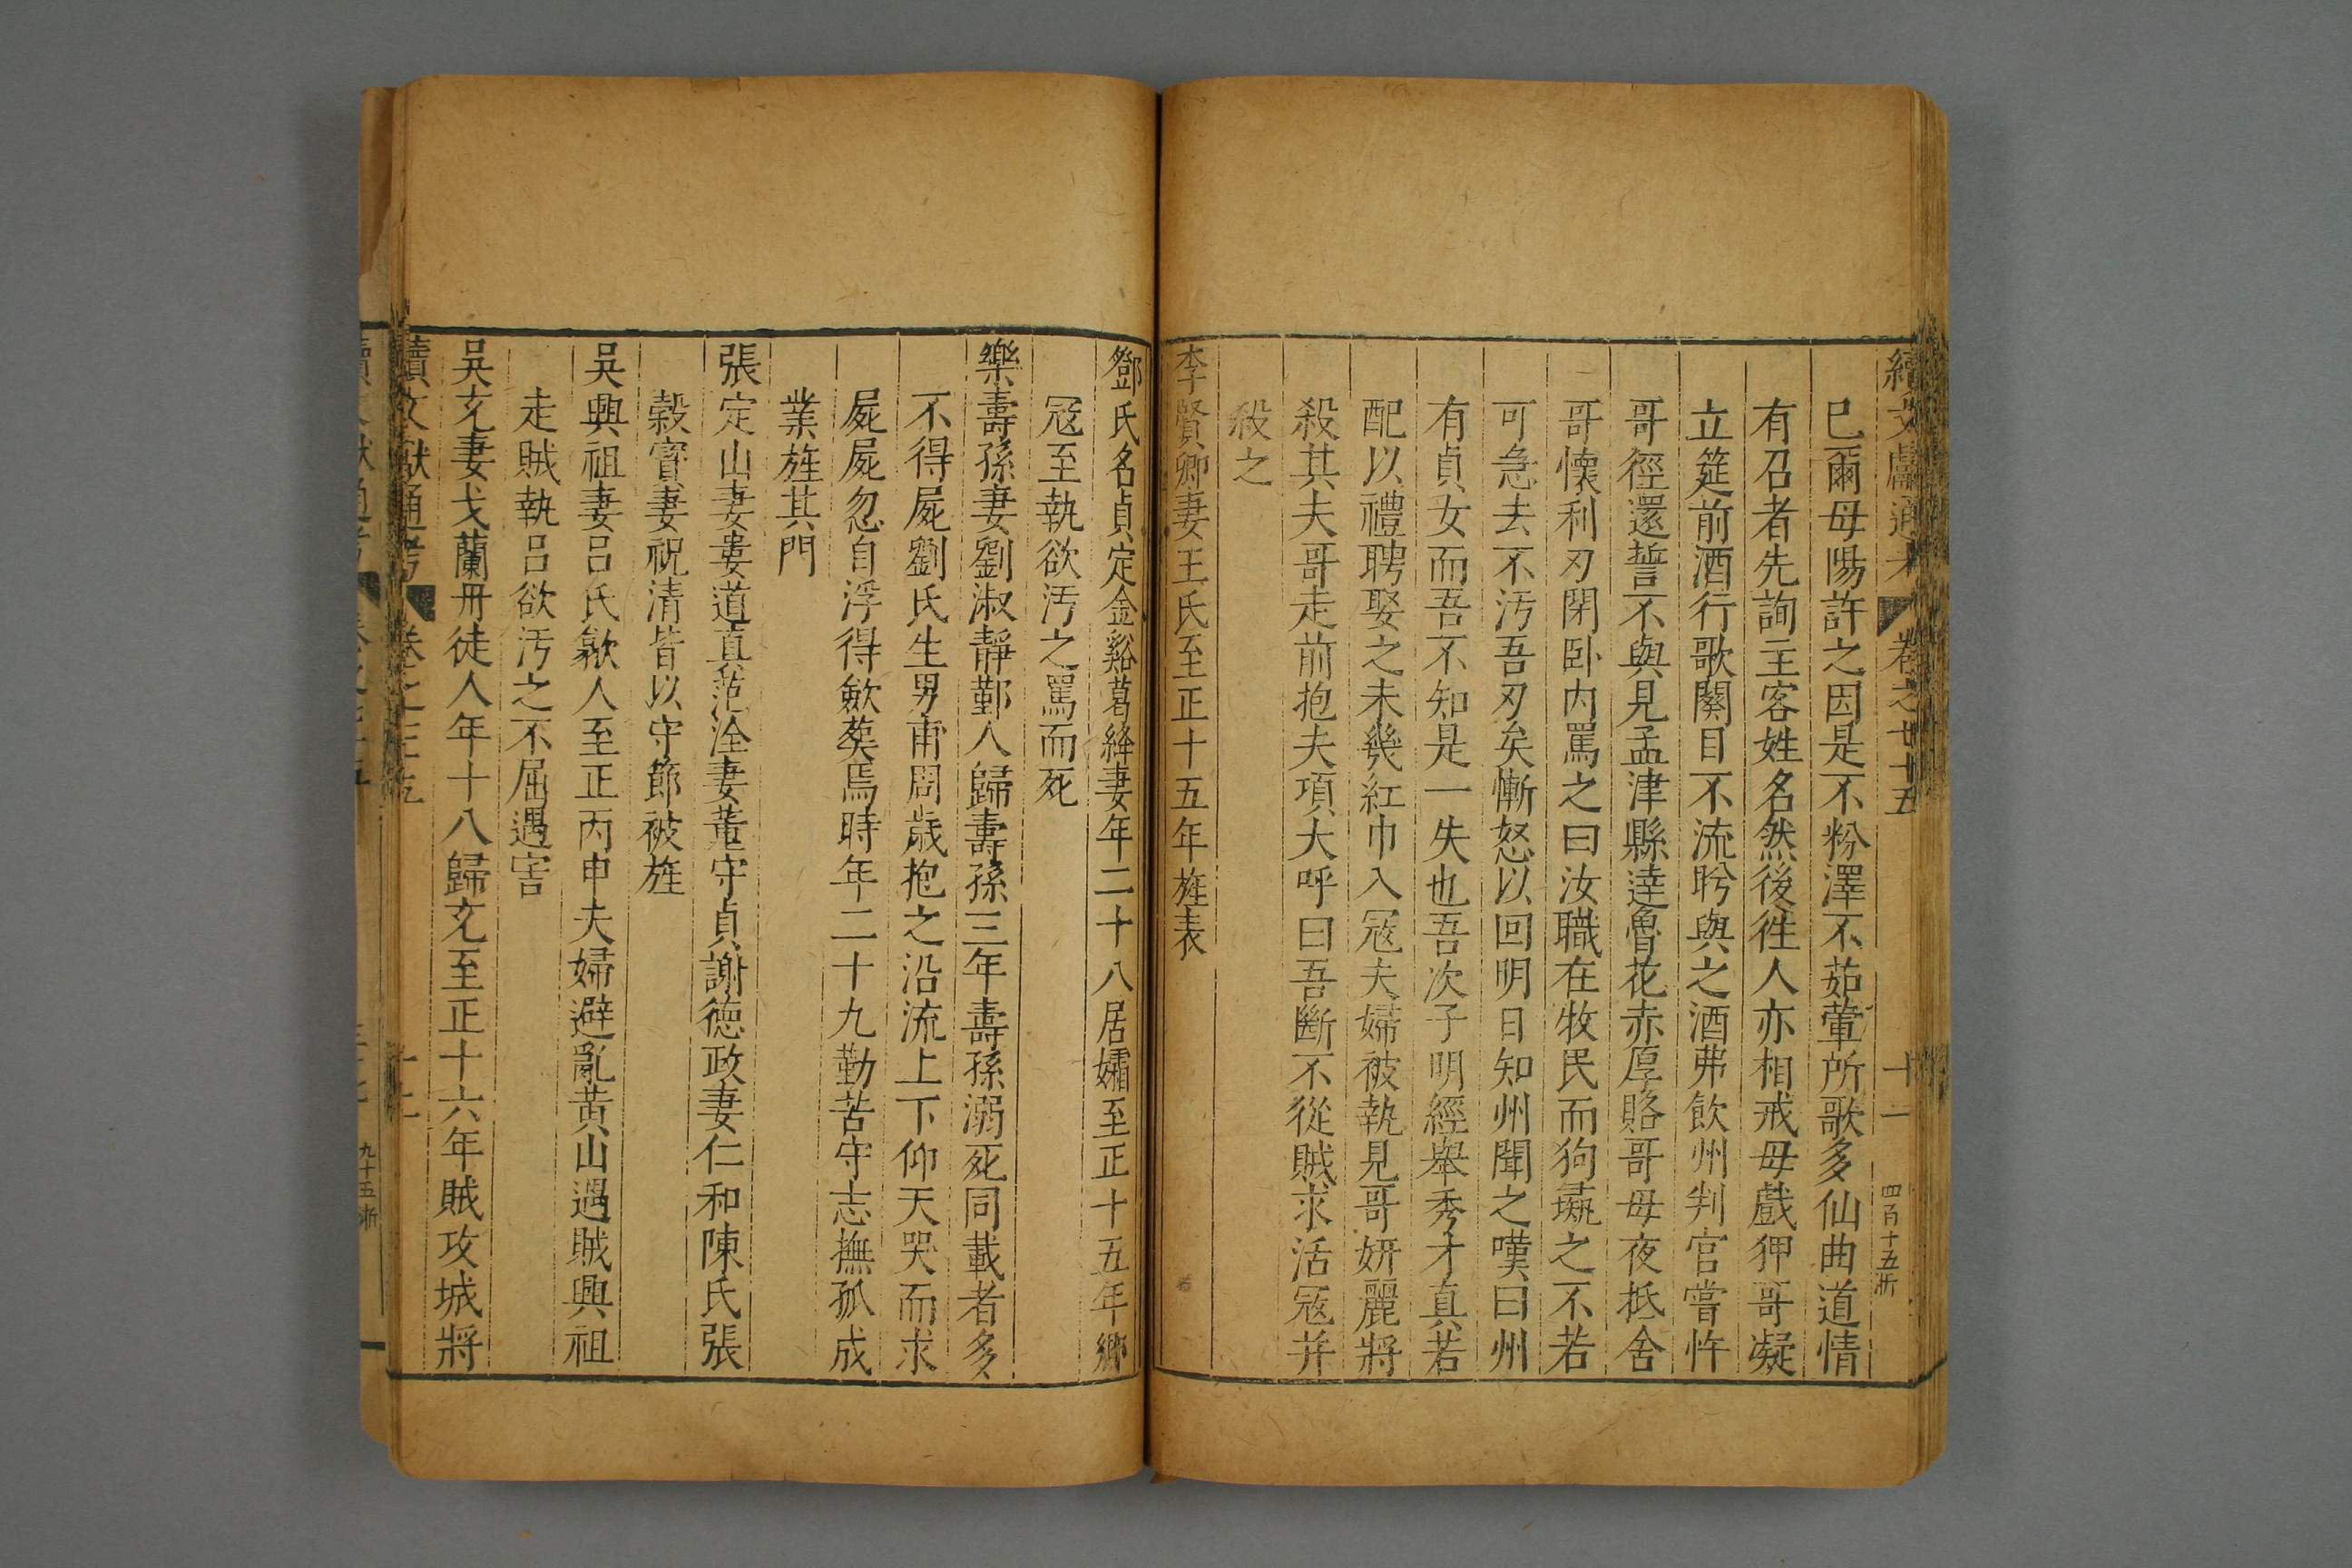 續文獻通考 卷之七十五 十一 四百十五浙
已爾母陽許之因是不粉澤不茹葷所歌多仙曲道情
有召者先詢主客姓名然後往人亦相戒毋戲狎哥凝
立筵前酒行歌闋目不流眄與之酒弗飲州判官嘗忤
哥徑還誓不與見孟津縣達魯花赤厚賂哥母夜抵舍
哥懷利刃閉卧内罵之曰汝職在牧民而狗彘之不若
可急去不汚吾刃矣慚怒以回明日知州聞之嘆曰州
有貞女而吾不知是一失也吾次子明經舉秀才真若
配以禮聘娶之未幾紅巾入冦夫婦被執見哥妍麗將
殺其夫哥走前抱夫項大呼曰吾斷不從賊求活冦并
殺之
李賢卿妻王氏至正十五年旌表
鄧氏名貞定金谿葛絳妻年二十八居孀至正十五年鄉
冦至執欲汚之罵而死
樂壽孫妻劉淑靜鄞人歸壽孫三年壽孫溺死同載者多
不得屍劉氏生男甫周歲抱之沿流上下仰天哭而求
屍屍忽自浮得斂葬焉時年二十九勤苦守志撫孤成
業旌其門
張定山妻婁道直范淦妻董守貞謝德政妻仁和陳氏張
榖賓妻祝清皆以守節被旌
吳興祖妻呂氏歙人至正丙申夫婦避亂黃山遇賊興祖
走賊執呂欲汚之不屈遇害
吳玄妻戈蘭丹徒人年十八歸玄至正十六年賊攻城將
續文獻通考 卷之七十五 十一
九十五浙